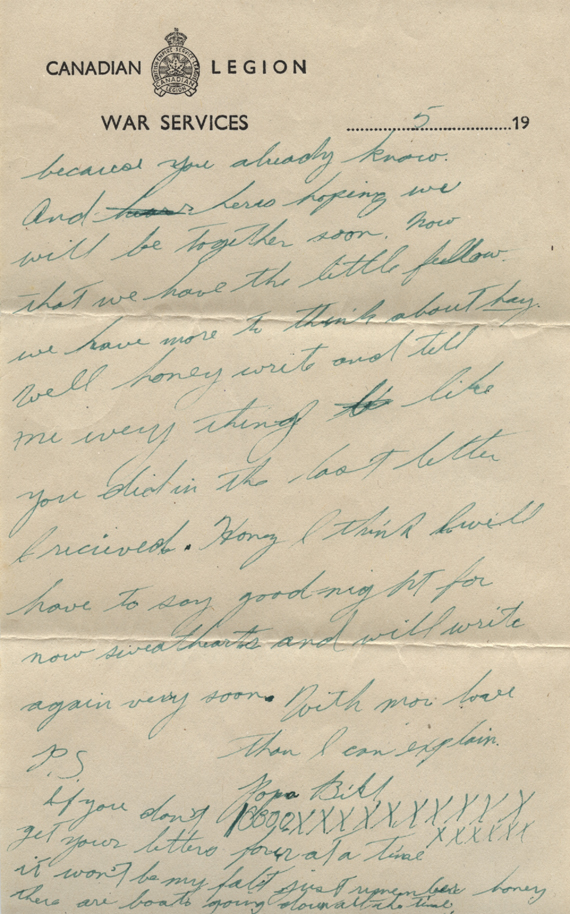 CANADIAN LEGION
WAR SERVICES
5 19
because you already know.
And heres hoping we
will be together soon. Now
that we have the little fellow.
we have more to think about hay.
Well honey write and tell
me every thing like
you did in the last letter
I recieved. Hony I think I will
have to say good night for
now sweathearts and will write
again very soon. With mor love
than I can explain.
Popa Bill
XXXXXXXXXXX
XXXXXX
P.S
If you don't
get your letters four at a time
it won't be my falt just remember honey
there are boats going down all the time